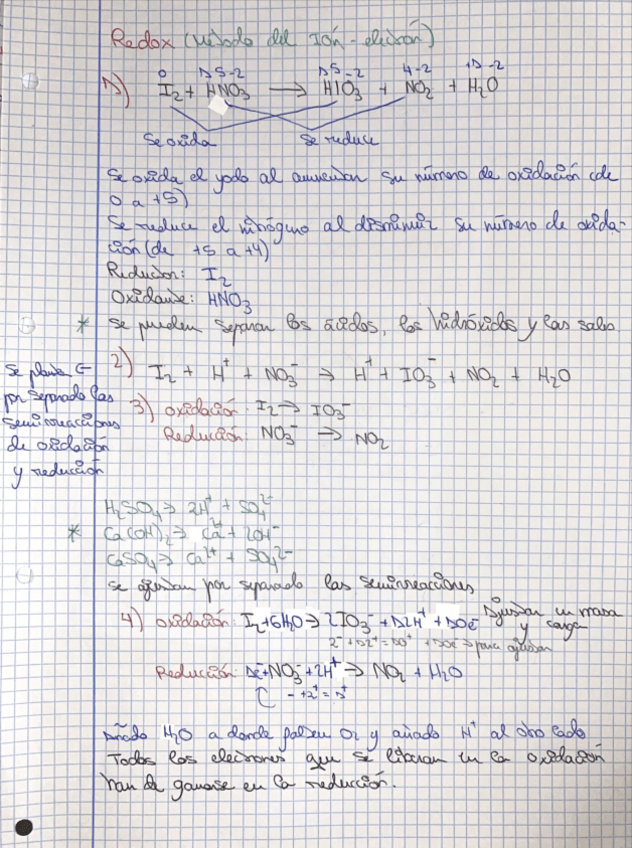 Redox (Método del Ión-electrón)
0 +1 5 -2 +1 5 -2 4 -2 +1 -2
1) I₂ + HNO₃ → HIO₃ + NO₂ + H₂O
Se oxida Se reduce
Se oxida el yodo al aumentar su número de oxidación (de
0 a +5)
Se reduce el nitrógeno al disminuir su número de oxida-
ción (de +5 a +4)
Reductor: I₂
Oxidante: HNO₃
* Se pueden separar los ácidos, los hidróxidos y las sales.
2) I₂ + H⁺ + NO₃⁻ → H⁺ + IO₃⁻ + NO₂ + H₂O
Se plantean ←
por separado las
semirreacciones
de oxidación
y reducción
3) Oxidación: I₂ → IO₃⁻
Reducción: NO₃⁻ → NO₂
H₂SO₄ → 2H⁺ + SO₄²⁻
* Ca(OH)₂ → Ca²⁺ + 2OH⁻
CaSO₄ → Ca²⁺ + SO₄²⁻
Se ajustan por separado las semirreacciones
4) Oxidación: I₂ + 6H₂O → 2IO₃⁻ + 12H⁺ + 10e⁻ Ajustar en masa
y carga
2⁻ + 12⁺ = 10⁺ + 10e⁻ → para ajustar
Reducción: 1e⁻ + NO₃⁻ + 2H⁺ → NO₂ + H₂O
- +2⁺ = 1⁺
Añado H₂O a donde falten O₂ y añado H⁺ al otro lado
Todos los electrones que se liberan en la oxidación
han de ganarse en la reducción.